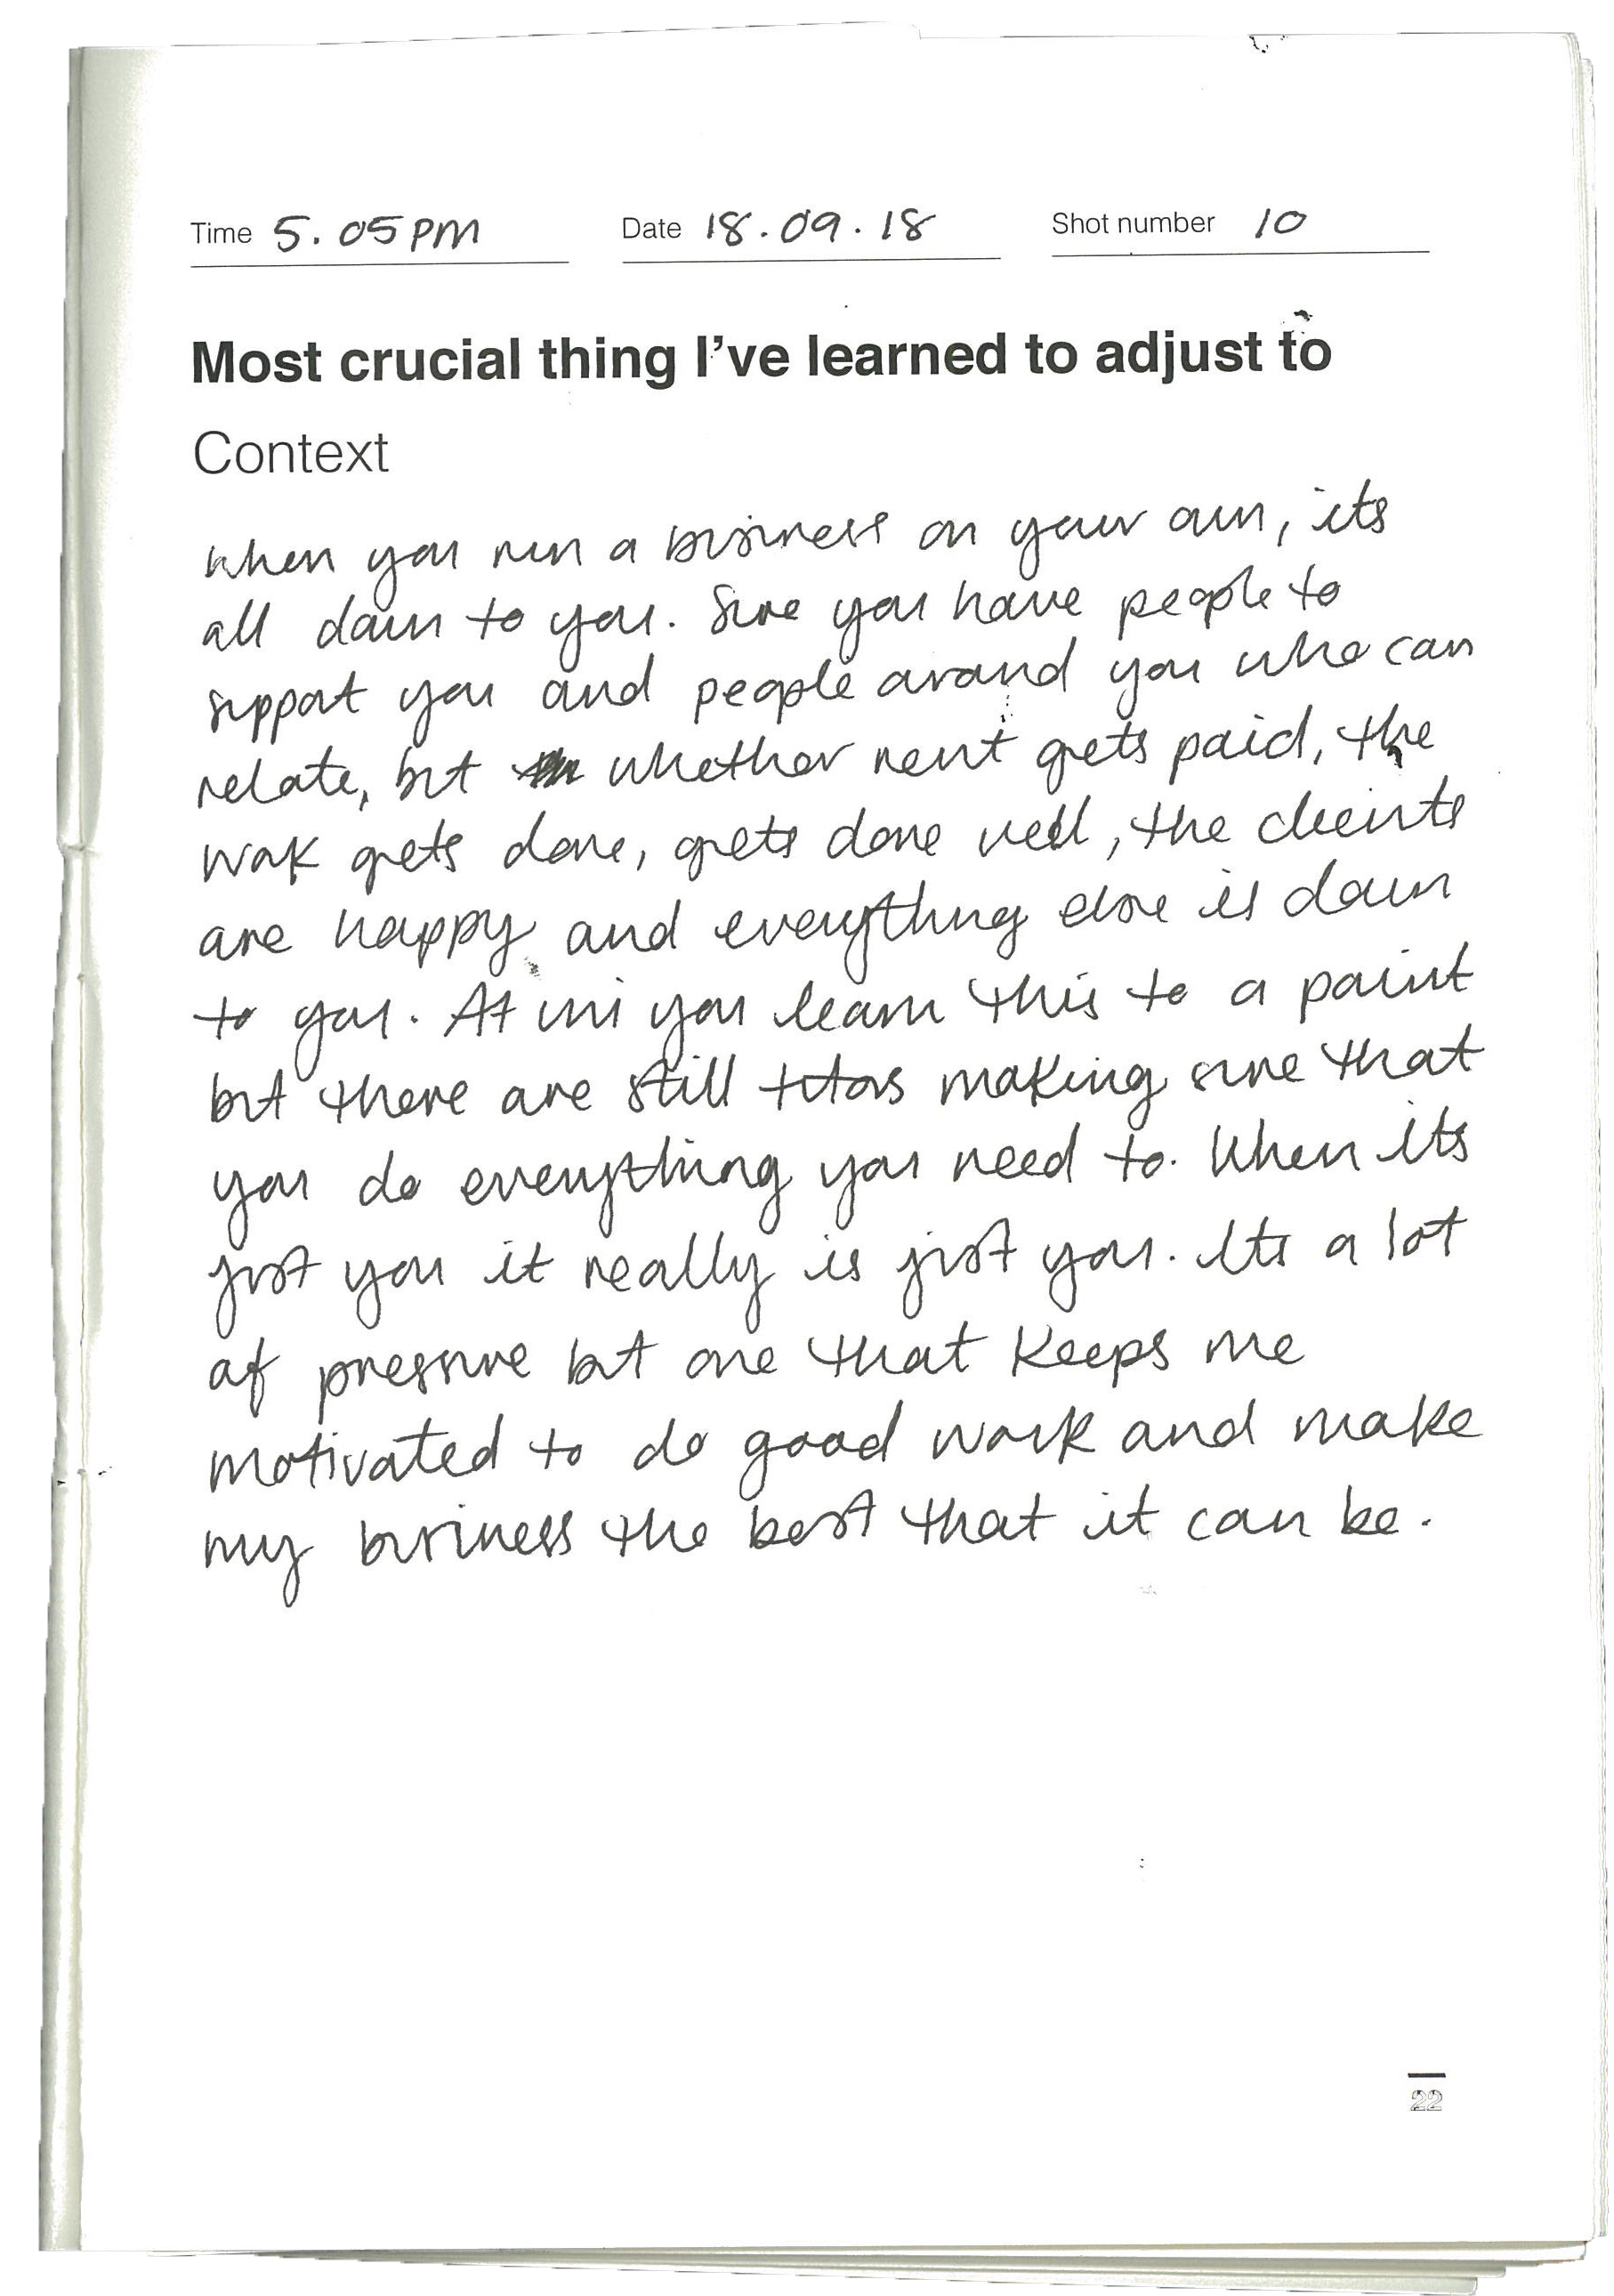 Time 5.05PM Date 18.09.18 Shot number 10
Most crucial thing I've learned to adjust to
Context
When you run a business on your own, its
all down to you. Sure you have people to
support you and people around you who can
relate, but whether rent gets paid, the
work gets done, gets done well, the clients
are happy and everything else is down
to you. At uni you learn this to a point
but there are still tutors making sure that
you do everything you need to. When its
just you it really is just you. Its a lot
of pressure but one that keeps me
motivated to do good work and make
my business the best that it can be.
22